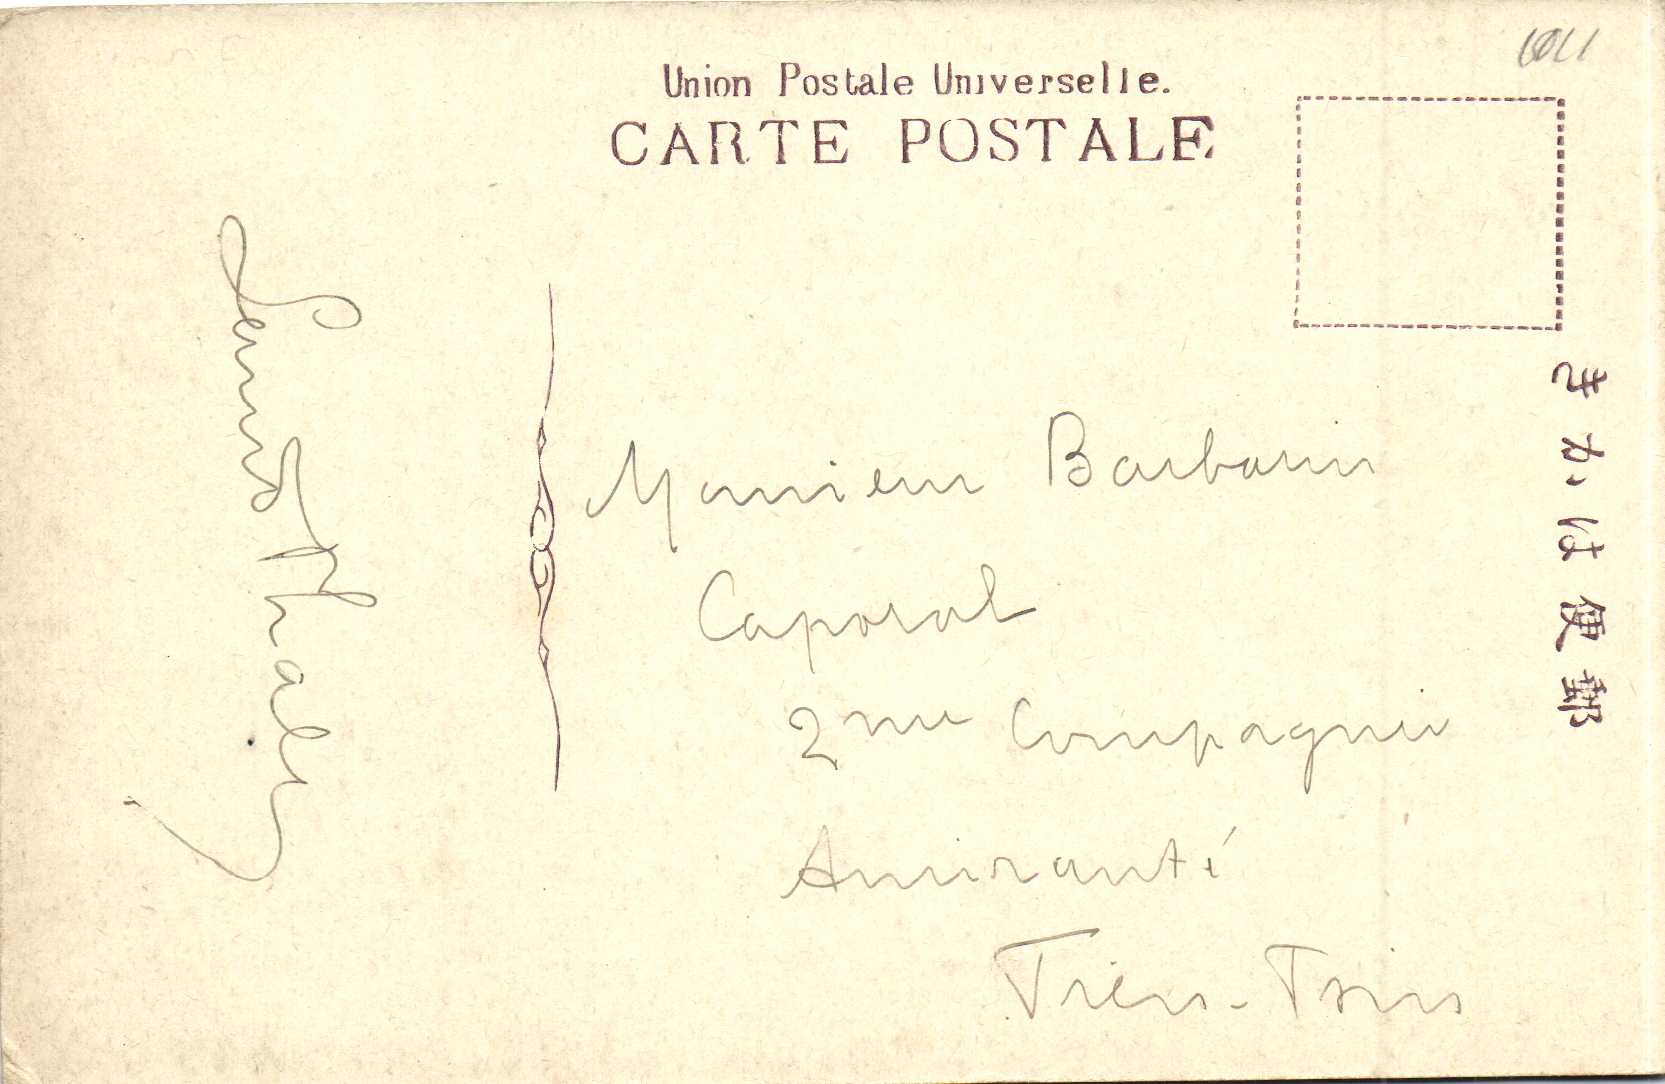 Union Postale Universelle.
CARTE POSTALE
きかは便郵
Monsieur Barbarin
Caporal
2me Compagnie
Amirauté
Tien-Tsin